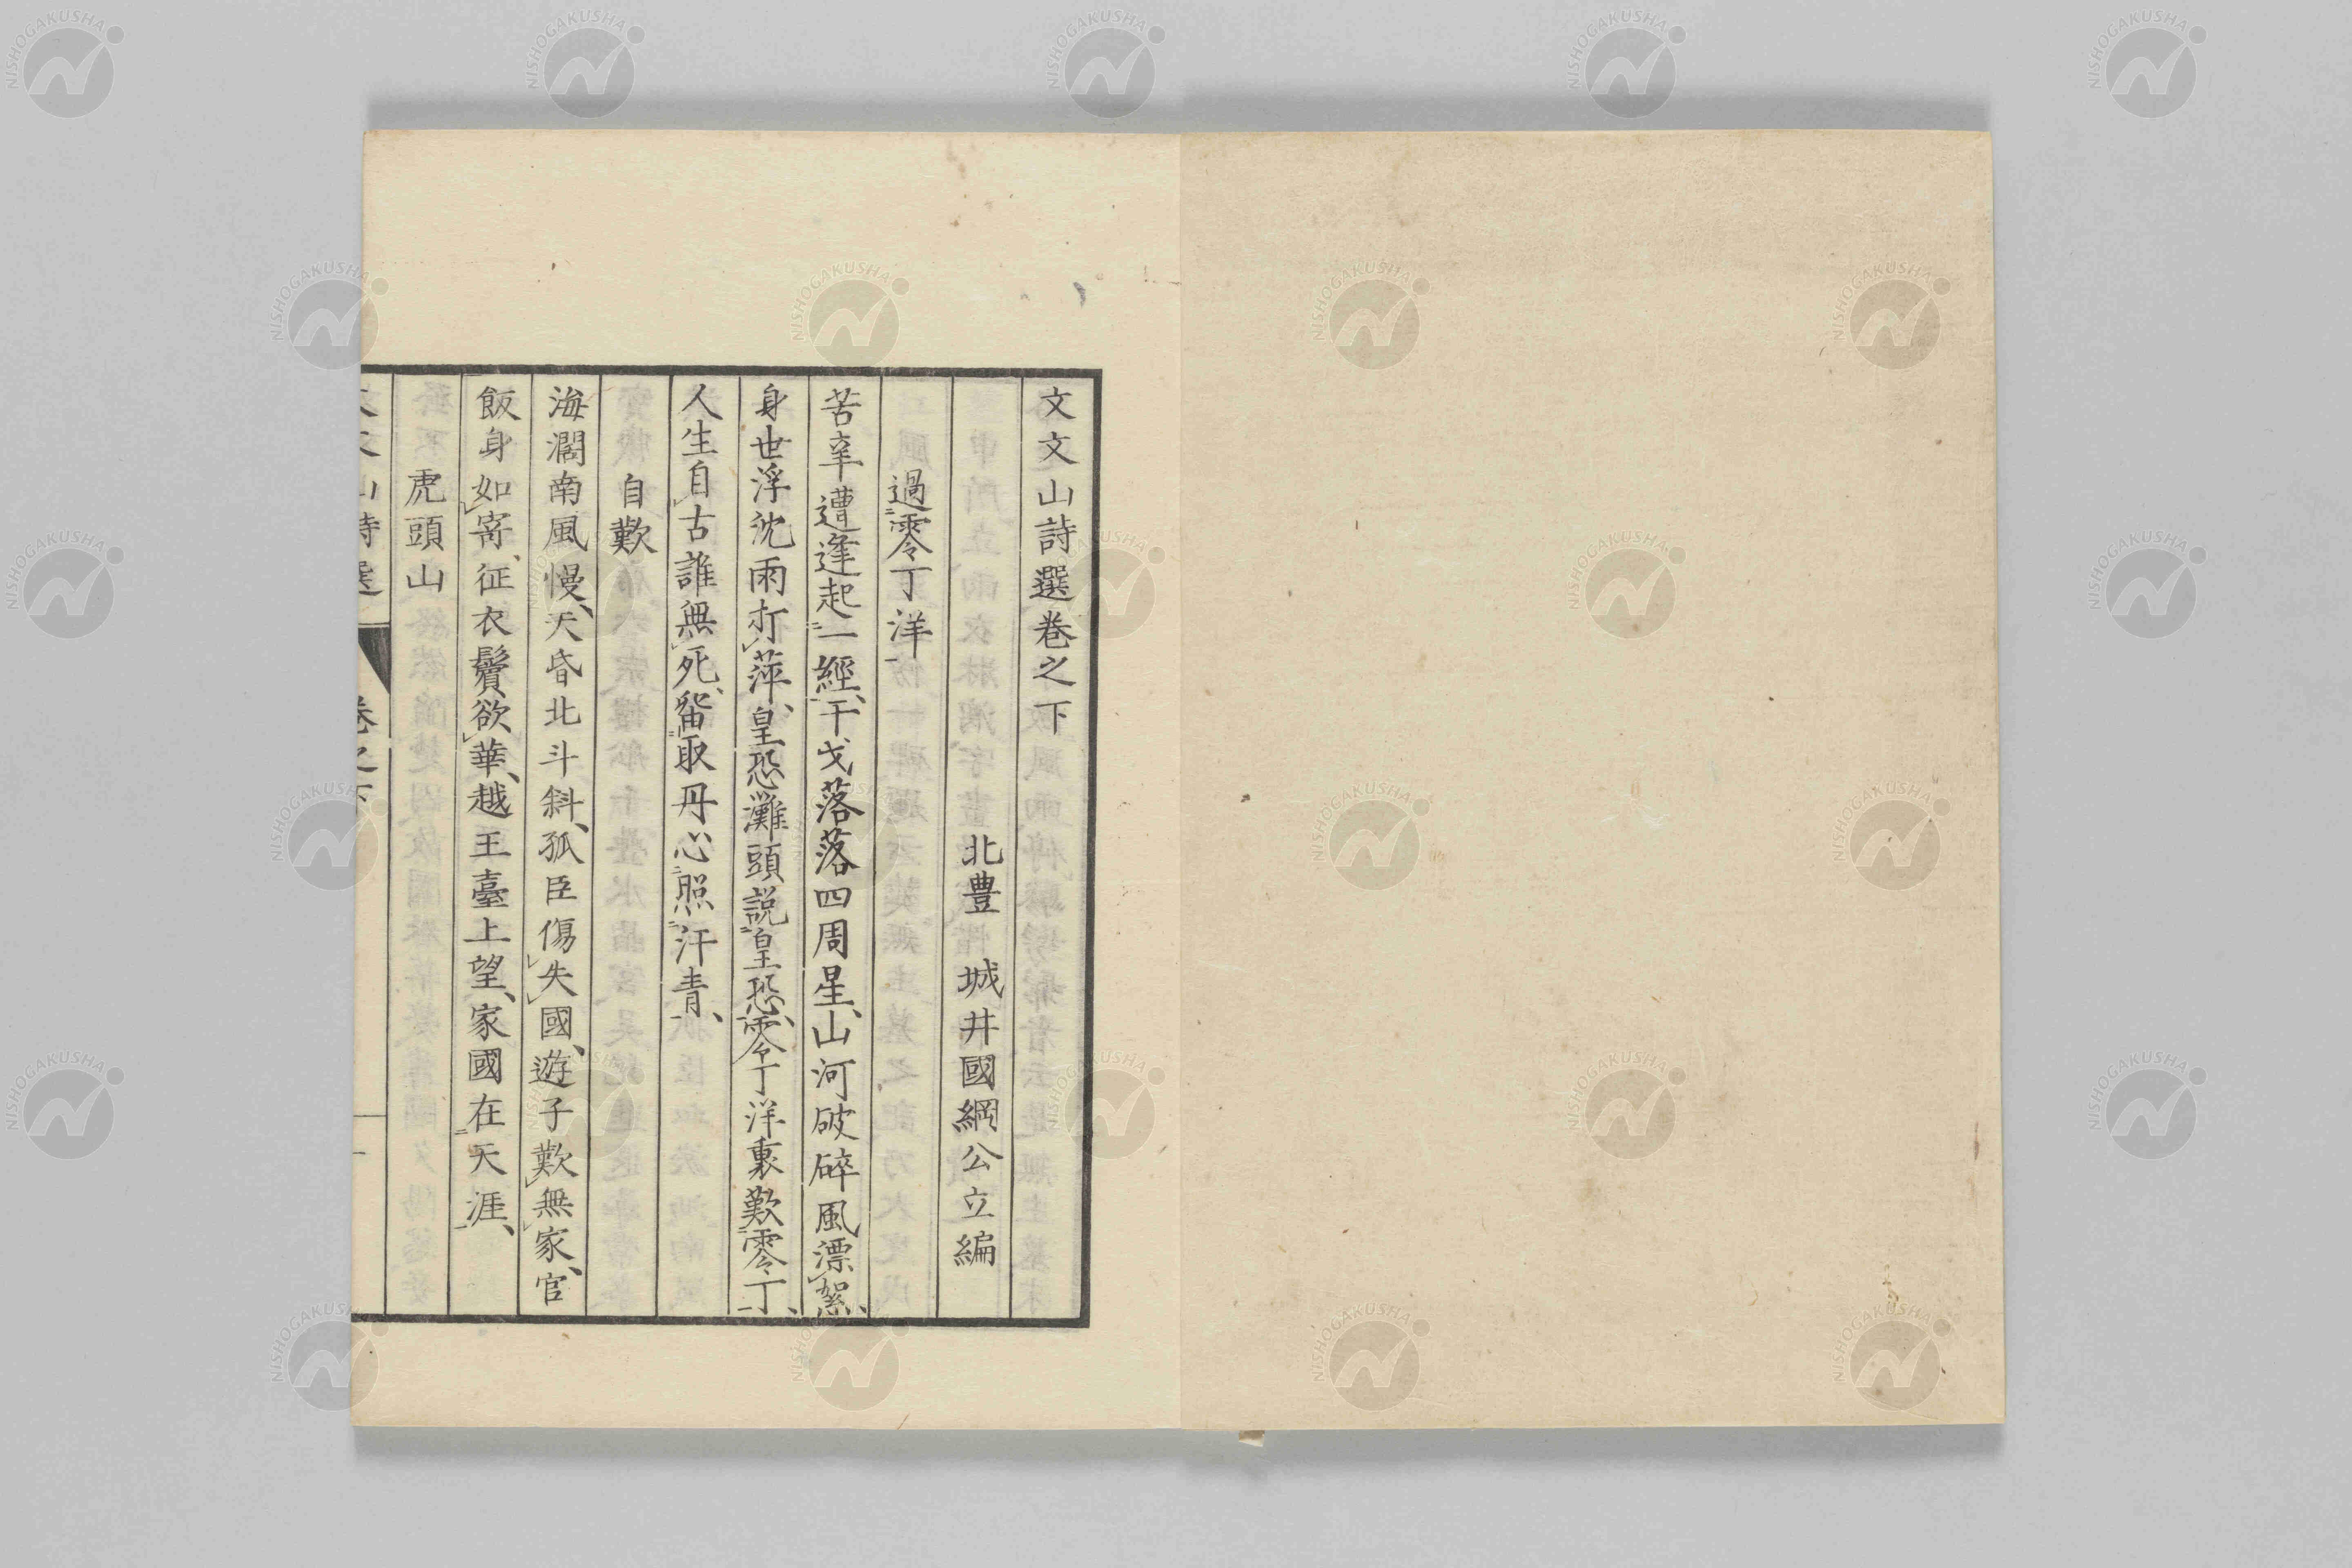 文文山詩選巻之下
北豊 城井國綱公立編
過零丁洋
苦辛遭逢起一經、干戈落落四周星、山河破碎風漂絮、
身世浮沈雨打萍、皇恐灘頭説皇恐、零丁洋裏歎零丁、
人生自古誰無死、留取丹心照汗青、
自歎
海濶南風慢、天昏北斗斜、孤臣傷失國、遊子歎無家、官
飯身如寄、征衣鬢欲華、越王臺上望、家國在天涯、
虎頭山
NISHOGAKUSHA